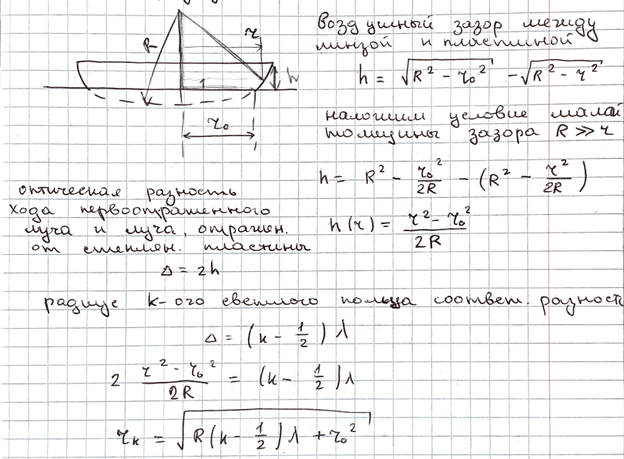 R
r
h
1
r₀
Воздушный зазор между
линзой и пластиной
h = √(R² - r₀²) - √(R² - r²)
наложим условие малой
толщины зазора R ≫ r
h = R² - r₀²/2R - (R² - r²/2R)
h(r) = (r² - r₀²)/2R
оптическая разность
хода первоотраженного
луча и луча, отражен.
от стеклян. пластины
Δ = 2h
радиус k-ого светлого кольца соответ. разность
Δ = (k - 1/2) λ
2 (r² - r₀²)/2R = (k - 1/2) λ
rₖ = √(R(k - 1/2) λ + r₀²)